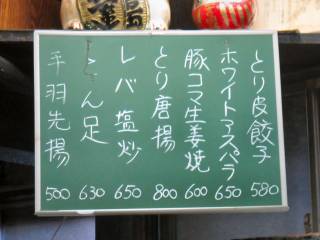 とり皮餃子 580
ホワイトアスパラ 650
豚コマ生姜焼 600
とり唐揚 800
レバ塩炒 650
とん足 630
手羽先揚 500